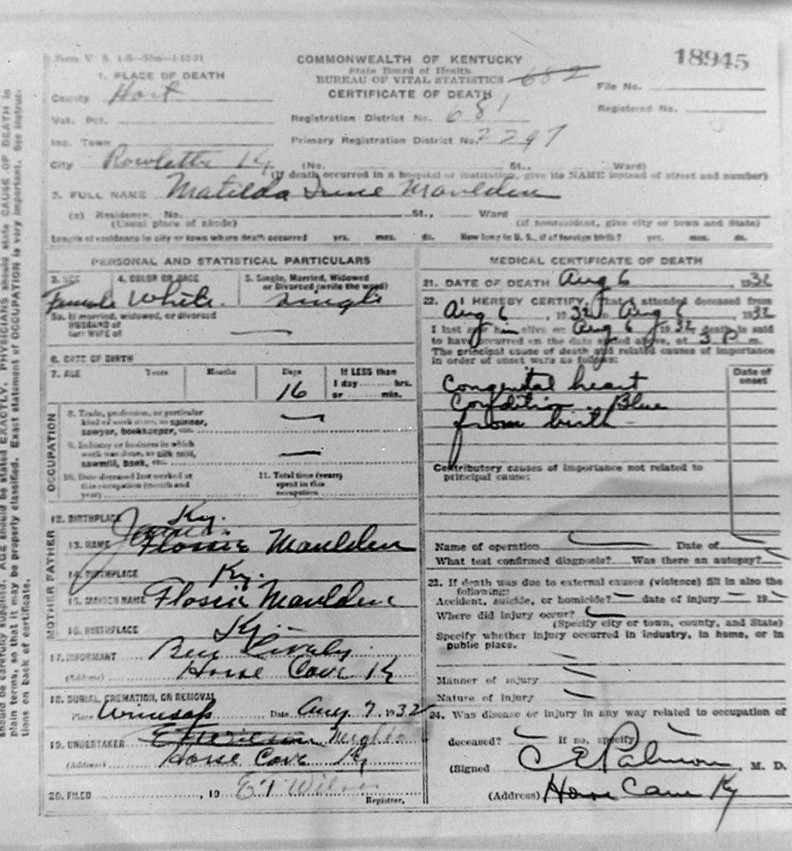 Form V. S. 1-B
18945
COMMONWEALTH OF KENTUCKY
State Board of Health
BUREAU OF VITAL STATISTICS 682
CERTIFICATE OF DEATH
1. PLACE OF DEATH
County Hart
File No.
Registered No.
Vot. Pct.
Registration District No. 681
Inc. Town
Primary Registration District No. 2297
City Rowletts Ky (No. St., Ward)
(If death occurred in a hospital or institution, give its NAME instead of street and number)
2. FULL NAME Matilda Maulden
(a) Residence. No. St., Ward
(Usual place of abode) (If nonresident, give city or town and State)
Length of residence in city or town where death occurred yrs. mos. ds. How long in U. S., if of foreign birth? yrs. mos. ds.
PERSONAL AND STATISTICAL PARTICULARS
3. SEX 4. COLOR OR RACE 5. Single, Married, Widowed
or Divorced (write the word)
Female White. Single
5a. If married, widowed, or divorced
HUSBAND of
(or) WIFE of
6. DATE OF BIRTH
7. AGE Years Months Days If LESS than
16 1 day hrs.
or min.
OCCUPATION
8. Trade, profession, or particular
kind of work done, as spinner,
sawyer, bookkeeper, etc.
9. Industry or business in which
work was done, as silk mill,
sawmill, bank, etc.
10. Date deceased last worked at
this occupation (month and
year)
11. Total time (years)
spent in this
occupation
12. BIRTHPLACE Ky.
FATHER
13. NAME Flossie Maulden
14. BIRTHPLACE Ky.
MOTHER
15. MAIDEN NAME Flossie Maulden
16. BIRTHPLACE Ky.
17. INFORMANT
(Address) Horse Cave Ky
18. BURIAL, CREMATION, OR REMOVAL
Place Date Aug 7, 1932
19. UNDERTAKER
(Address) Horse Cave Ky
20. FILED , 19 E T Wilson
Registrar.
MEDICAL CERTIFICATE OF DEATH
21. DATE OF DEATH Aug 6 1932
22. I HEREBY CERTIFY, That I attended deceased from
Aug 6, 1932, to Aug 6, 1932
I last saw h alive on Aug 6, 1932, death is said
to have occurred on the date stated above, at 3 P m.
The principal cause of death and related causes of importance
in order of onset were as follows:
Date of
onset
Congenital heart
Condition Blue
from birth
Contributory causes of importance not related to
principal cause:
Name of operation Date of
What test confirmed diagnosis? Was there an autopsy?
23. If death was due to external causes (violence) fill in also the
following:
Accident, suicide, or homicide? date of injury 19
Where did injury occur?
(Specify city or town, county, and State)
Specify whether injury occurred in industry, in home, or in
public place.
Manner of injury
Nature of injury
24. Was disease or injury in any way related to occupation of
deceased? If so, specify
(Signed) C E Palmore, M. D.
(Address) Horse Cave Ky
should be carefully supplied. AGE should be stated EXACTLY. PHYSICIANS should state CAUSE OF DEATH in
plain terms so that it may be properly classified. Exact statement of OCCUPATION is very important. See instruc-
tions on back of certificate.